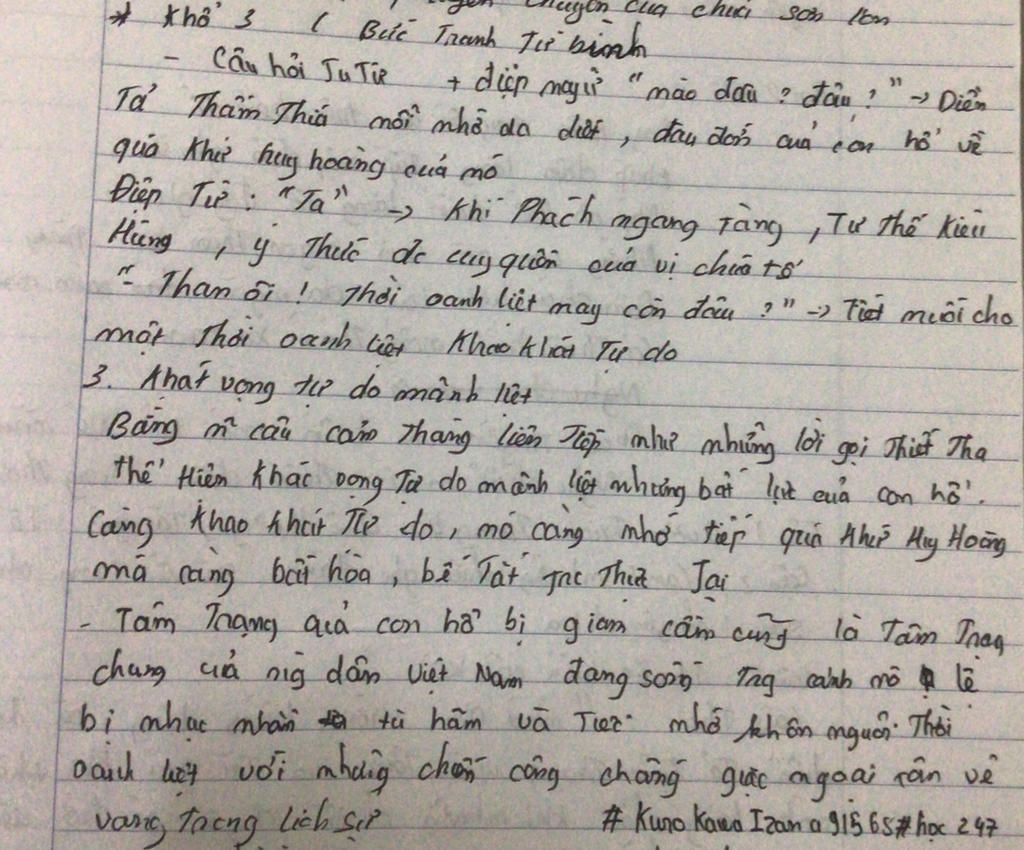 chuyên của chúa sơn lâm
* Khổ 3 ( Bức Tranh Tứ bình
- Câu hỏi Tu Từ + điệp ngữ "nào đâu? đâu?" → Diễn
Tả Thấm Thía nỗi nhớ da diết, đau đớn của con hổ về
quá khứ huy hoàng của nó
Điệp Từ: "Ta" → Khí Phách ngang Tàng, Tư thế Kiêu
Hùng, ý Thức đc uy quền của vị chúa tể
"- Than ôi! Thời oanh liệt nay còn đâu?" → Tiết nuối cho
một Thời oanh liệt Khao khát Tự do
3. Khát vọng tự do mãnh liệt
Bằng n~ câu cảm Thang liên Tiếp như những lời gọi Thiết Tha
thể Hiện Khác vọng Tự do mãnh liệt nhưng bất lực của con hổ.
Càng Khao Khát Tự do, nó càng nhớ tiếp quá Khứ Huy Hoàng
mà càng bất hòa, bế Tắt Trc Thực Tại
- Tâm Trạng của con hổ bị giam cầm cũng là Tâm Trạng
chung của ng dân Việt Nam đang sống Trg cảnh nô lệ
bị nhục nhằn tù hãm và Tiếc nhớ khôn nguôi Thời
oanh liệt với những chiến công chống giặc ngoại xân vẻ
vang Trong lịch sử # KuroKawa Izana91565#học 247